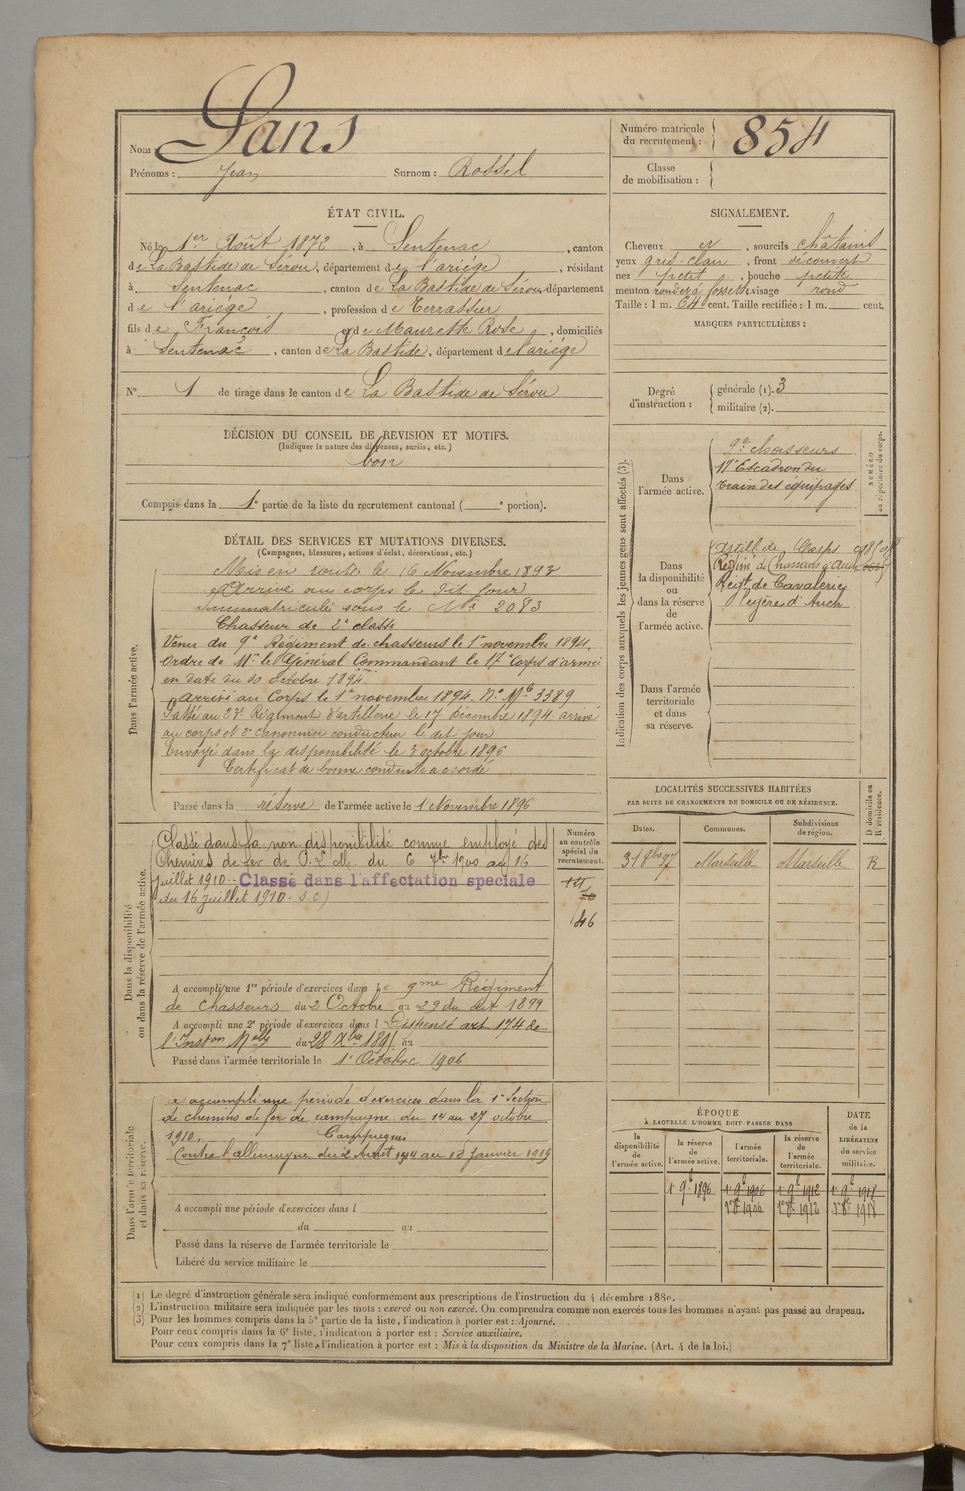 Nom : Sans
Prénoms : Jean Surnom : Rossel
Numéro matricule
du recrutement : 854
Classe
de mobilisation :
ÉTAT CIVIL.
Né le 1er Août 1872, à Sentenac, canton
de La Bastide de Sérou, département de l'ariége, résidant
à Sentenac, canton de La Bastide de Sérou département
de l'ariége, profession de Terrassier
fils de François et de Maurette Rose, domiciliés
à Sentenac, canton de La Bastide, département de l'ariége
N° 1 de tirage dans le canton de La Bastide de Sérou
SIGNALEMENT.
Cheveux et, sourcils châtains
yeux gris-clair, front découvert
nez petit, bouche petite
menton rond et à fossette visage rond
Taille : 1 m. 64 cent. Taille rectifiée : 1 m. cent.
MARQUES PARTICULIÈRES :
Degré
d'instruction :
générale (1). 3
militaire (2).
DÉCISION DU CONSEIL DE REVISION ET MOTIFS.
(Indiquer la nature des dispenses, sursis, etc.)
bon
Compris dans la 1e partie de la liste du recrutement cantonal ( e portion).
DÉTAIL DES SERVICES ET MUTATIONS DIVERSES.
(Campagnes, blessures, actions d'éclat, décorations, etc.)
Dans l'armée active.
Mis en route le 16 Novembre 1893
Arrivé au corps le dit jour
Immatriculé sous le No 2083
Chasseur de 2e classe
Venu du 9e Régiment de chasseurs le 1er novembre 1894.
Ordre de Mr le Général Commandant le 17e Corps d'armée
en date du 30 octobre 1894.
arrivé au Corps le 1er novembre 1894. No Mle 3389
Passé au 23e Régiment d'artillerie le 17 Décembre 1894 arrivé
au corps et 2e canonnier conducteur le dit jour
Envoyé dans la disponibilité le 3 octobre 1896
Certificat de bonne conduite accordé
Passé dans la réserve de l'armée active le 1 Novembre 1896
Indication des corps auxquels les jeunes gens sont affectés (3).
NUMÉRO
au répertoire du corps.
Dans
l'armée active.
9e chasseurs
17e Escadron du
train des équipages
Dans
la disponibilité
ou
dans la réserve
de
l'armée active.
artill. de Corps
Régim. de Chasseurs à Auch
Regt de Cavalerie
légère d'Auch
Dans l'armée
territoriale
et dans
sa réserve.
Dans la disponibilité
ou dans la réserve de l'armée active.
Classé dans la non disponibilité comme employé des
Chemins de fer de P. L. M. du 6 7bre 1900 au 16
juillet 1910. Classé dans l'affectation speciale
du 16 juillet 1910. S.C)
Numéro
au contrôle
spécial du
recrutement.
46
A accompli une 1re période d'exercices dans le 9me Régiment
de Chasseurs du 2 Octobre au 29 du dit 1899
A accompli une 2e période d'exercices dans l Dispensé art 174 de
l'Inston Melle du 28 Xbre 1895 au
Passé dans l'armée territoriale le 1er Octobre 1906
LOCALITÉS SUCCESSIVES HABITÉES
PAR SUITE DE CHANGEMENTS DE DOMICILE OU DE RÉSIDENCE.
D domicile ou
R résidence.
Dates. Communes. Subdivisions
de région.
31 8bre 97 Marseille Marseille R
Dans l'armée territoriale
et dans sa réserve.
a accompli une période d'exercices dans la 1e Section
de chemins de fer de campagne du 14 au 27 octobre
1910. Campagnes
Contre l'allemagne du 2 Août 1914 au 13 janvier 1919
A accompli une période d'exercices dans l
du au
Passé dans la réserve de l'armée territoriale le
Libéré du service militaire le
ÉPOQUE
À LAQUELLE L'HOMME DOIT PASSER DANS
DATE
de la
LIBÉRATION
du service
militaire.
la
disponibilité
de
l'armée active.
la réserve
de
l'armée active.
l'armée
territoriale.
la réserve
de
l'armée
territoriale.
1er 9bre 1896 1er 9bre 1906 1er 9bre 1912 1er 9bre 1918
1er 8bre 1906 1er 8bre 1912 1er 8bre 1918
(1) Le degré d'instruction générale sera indiqué conformément aux prescriptions de l'instruction du 4 décembre 1889.
(2) L'instruction militaire sera indiquée par les mots : exercé ou non exercé. On comprendra comme non exercés tous les hommes n'ayant pas passé au drapeau.
(3) Pour les hommes compris dans la 5e partie de la liste, l'indication à porter est : Ajourné.
Pour ceux compris dans la 6e liste, l'indication à porter est : Service auxiliaire.
Pour ceux compris dans la 7e liste, l'indication à porter est : Mis à la disposition du Ministre de la Marine. (Art. 4 de la loi.)